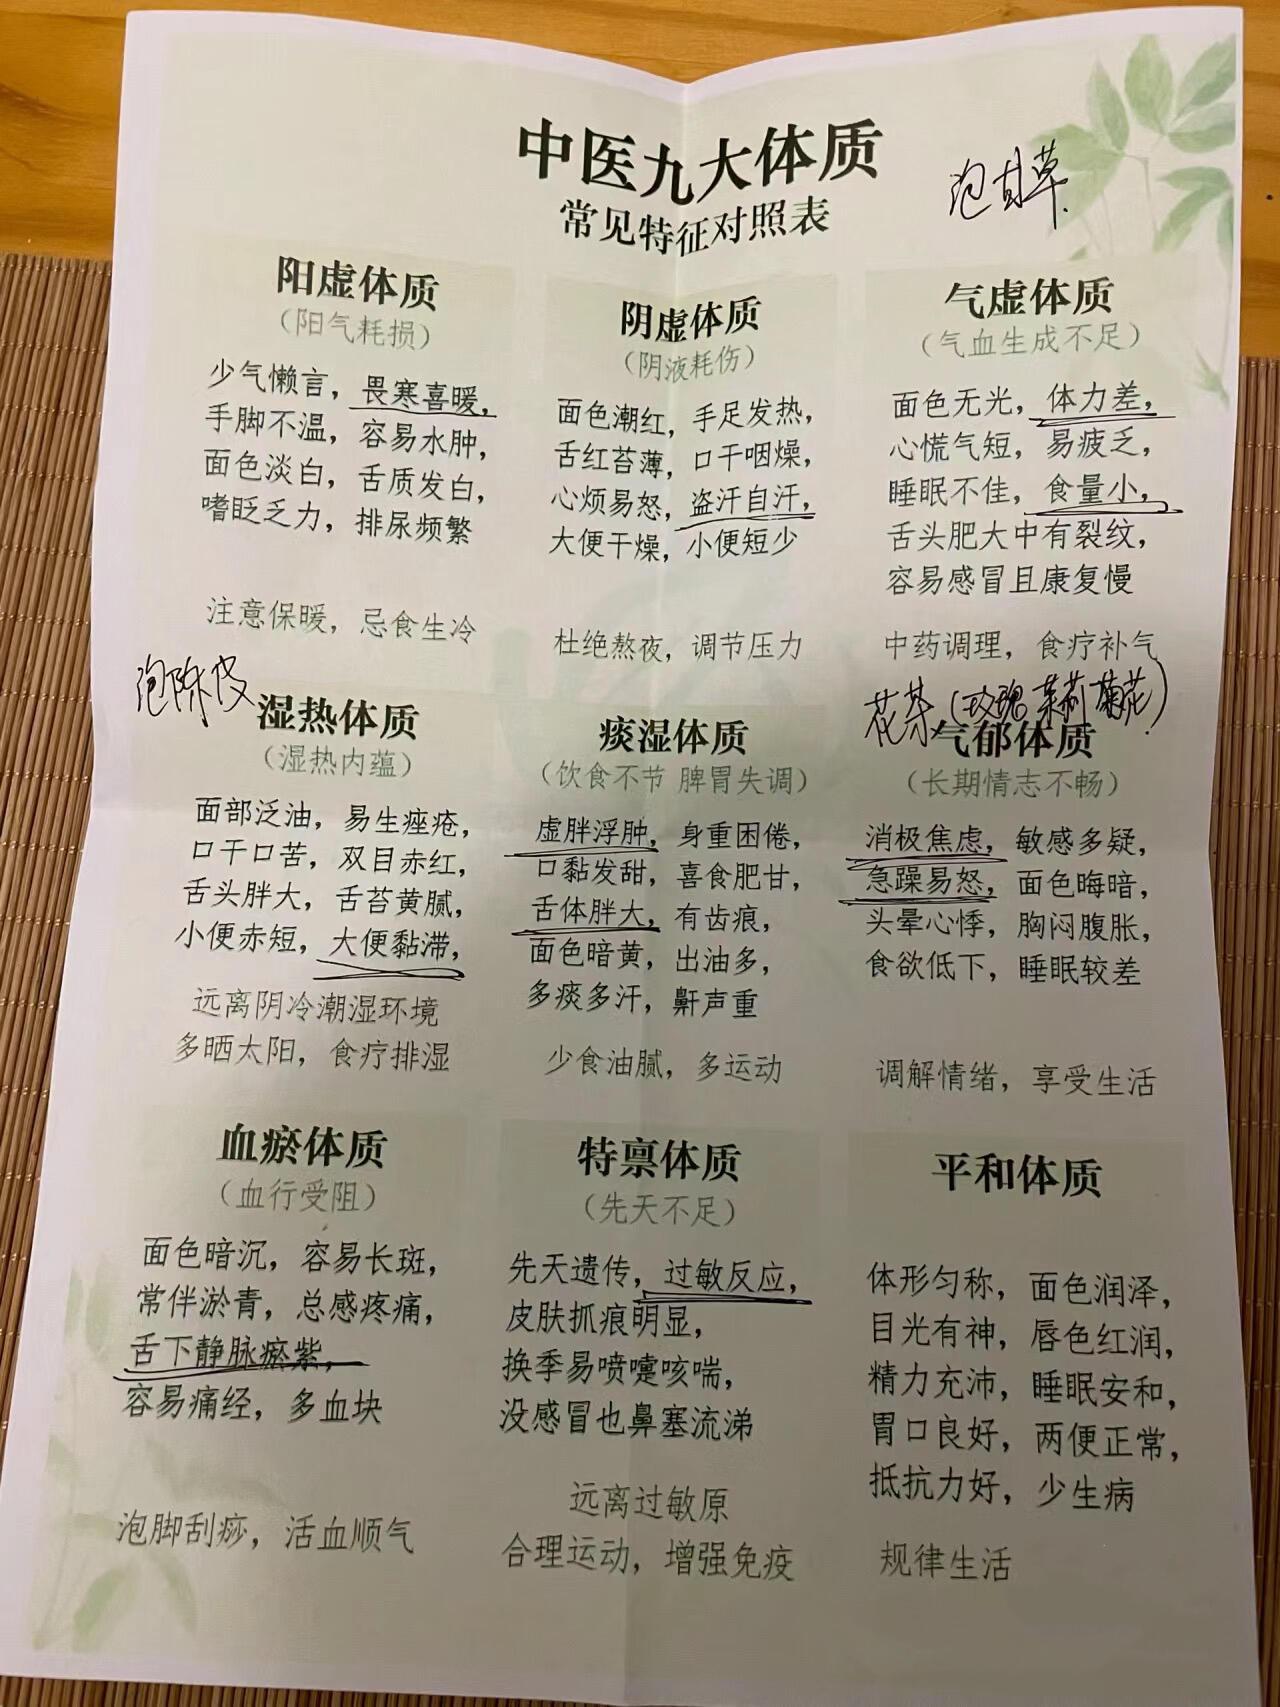 中医九大体质
泡甘草
常见特征对照表
阳虚体质
（阳气耗损）
少气懒言，畏寒喜暖，
手脚不温，容易水肿，
面色淡白，舌质发白，
嗜眨乏力，排尿频繁
注意保暖，忌食生冷
阴虚体质
（阴液耗伤）
面色潮红，手足发热，
舌红苔薄，口干咽燥，
心烦易怒，盗汗自汗，
大便干燥，小便短少
杜绝熬夜，调节压力
气虚体质
（气血生成不足）
面色无光，体力差，
心慌气短，易疲乏，
睡眠不佳，食量小，
舌头肥大中有裂纹，
容易感冒且康复慢
中药调理，食疗补气
泡陈皮
湿热体质
（湿热内蕴）
面部泛油，易生痤疮，
口干口苦，双目赤红，
舌头胖大，舌苔黄腻，
小便赤短，大便黏滞，
远离阴冷潮湿环境
多晒太阳，食疗排湿
痰湿体质
（饮食不节 脾胃失调）
虚胖浮肿，身重困倦，
口黏发甜，喜食肥甘，
舌体胖大，有齿痕，
面色暗黄，出油多，
多痰多汗，鼾声重
少食油腻，多运动
花茶（玫瑰 茉莉 菊花）
气郁体质
（长期情志不畅）
消极焦虑，敏感多疑，
急躁易怒，面色晦暗，
头晕心悸，胸闷腹胀，
食欲低下，睡眠较差
调解情绪，享受生活
血瘀体质
（血行受阻）
面色暗沉，容易长斑，
常伴淤青，总感疼痛，
舌下静脉瘀紫，
容易痛经，多血块
泡脚刮痧，活血顺气
特禀体质
（先天不足）
先天遗传，过敏反应，
皮肤抓痕明显，
换季易喷嚏咳喘，
没感冒也鼻塞流涕
远离过敏原
合理运动，增强免疫
平和体质
体形匀称，面色润泽，
目光有神，唇色红润，
精力充沛，睡眠安和，
胃口良好，两便正常，
抵抗力好，少生病
规律生活